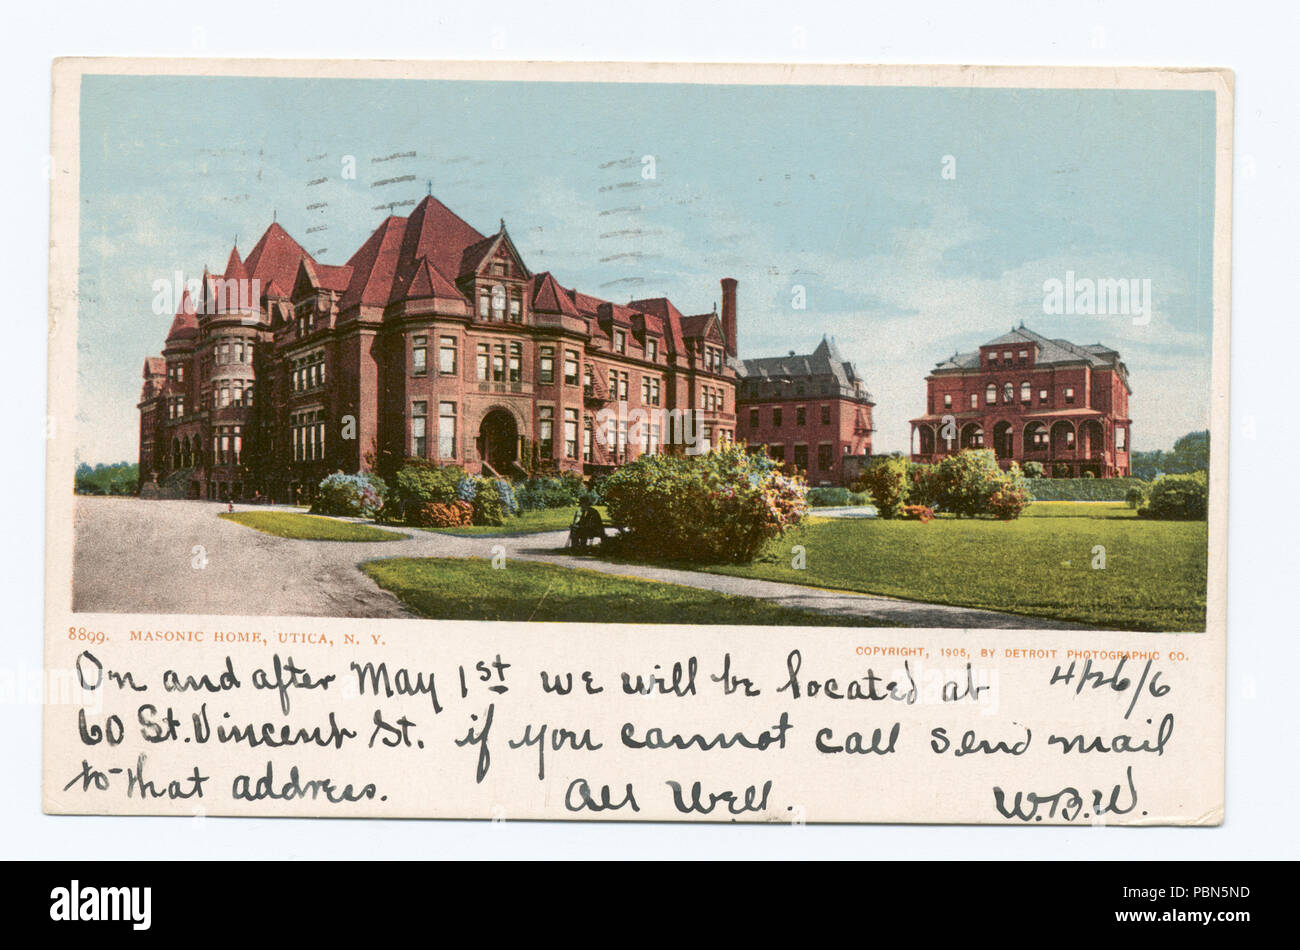 8899. MASONIC HOME, UTICA, N. Y.
COPYRIGHT, 1905, BY DETROIT PHOTOGRAPHIC CO.
On and after May 1st we will be located at 4/26/6
60 St. Vincent St. if you cannot call send mail
to that address. All Well. W.B.W.
a
alamy
a
a
alamy
a
alamy
a
a
alamy
Image ID: PBN5ND
www.alamy.com